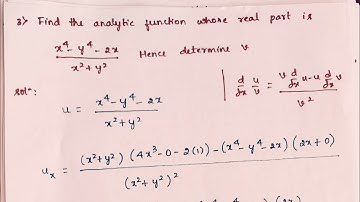 3) Find the analytic function whose real part is
x⁴-y⁴-2x / x²+y² Hence determine v
solⁿ: u = x⁴-y⁴-2x / x²+y²
d/dx u/v = v d/dx u - u d/dx v / v²
uₓ = (x²+y²) (4x³-0-2(1)) - (x⁴-y⁴-2x) (2x+0) / (x²+y²)²